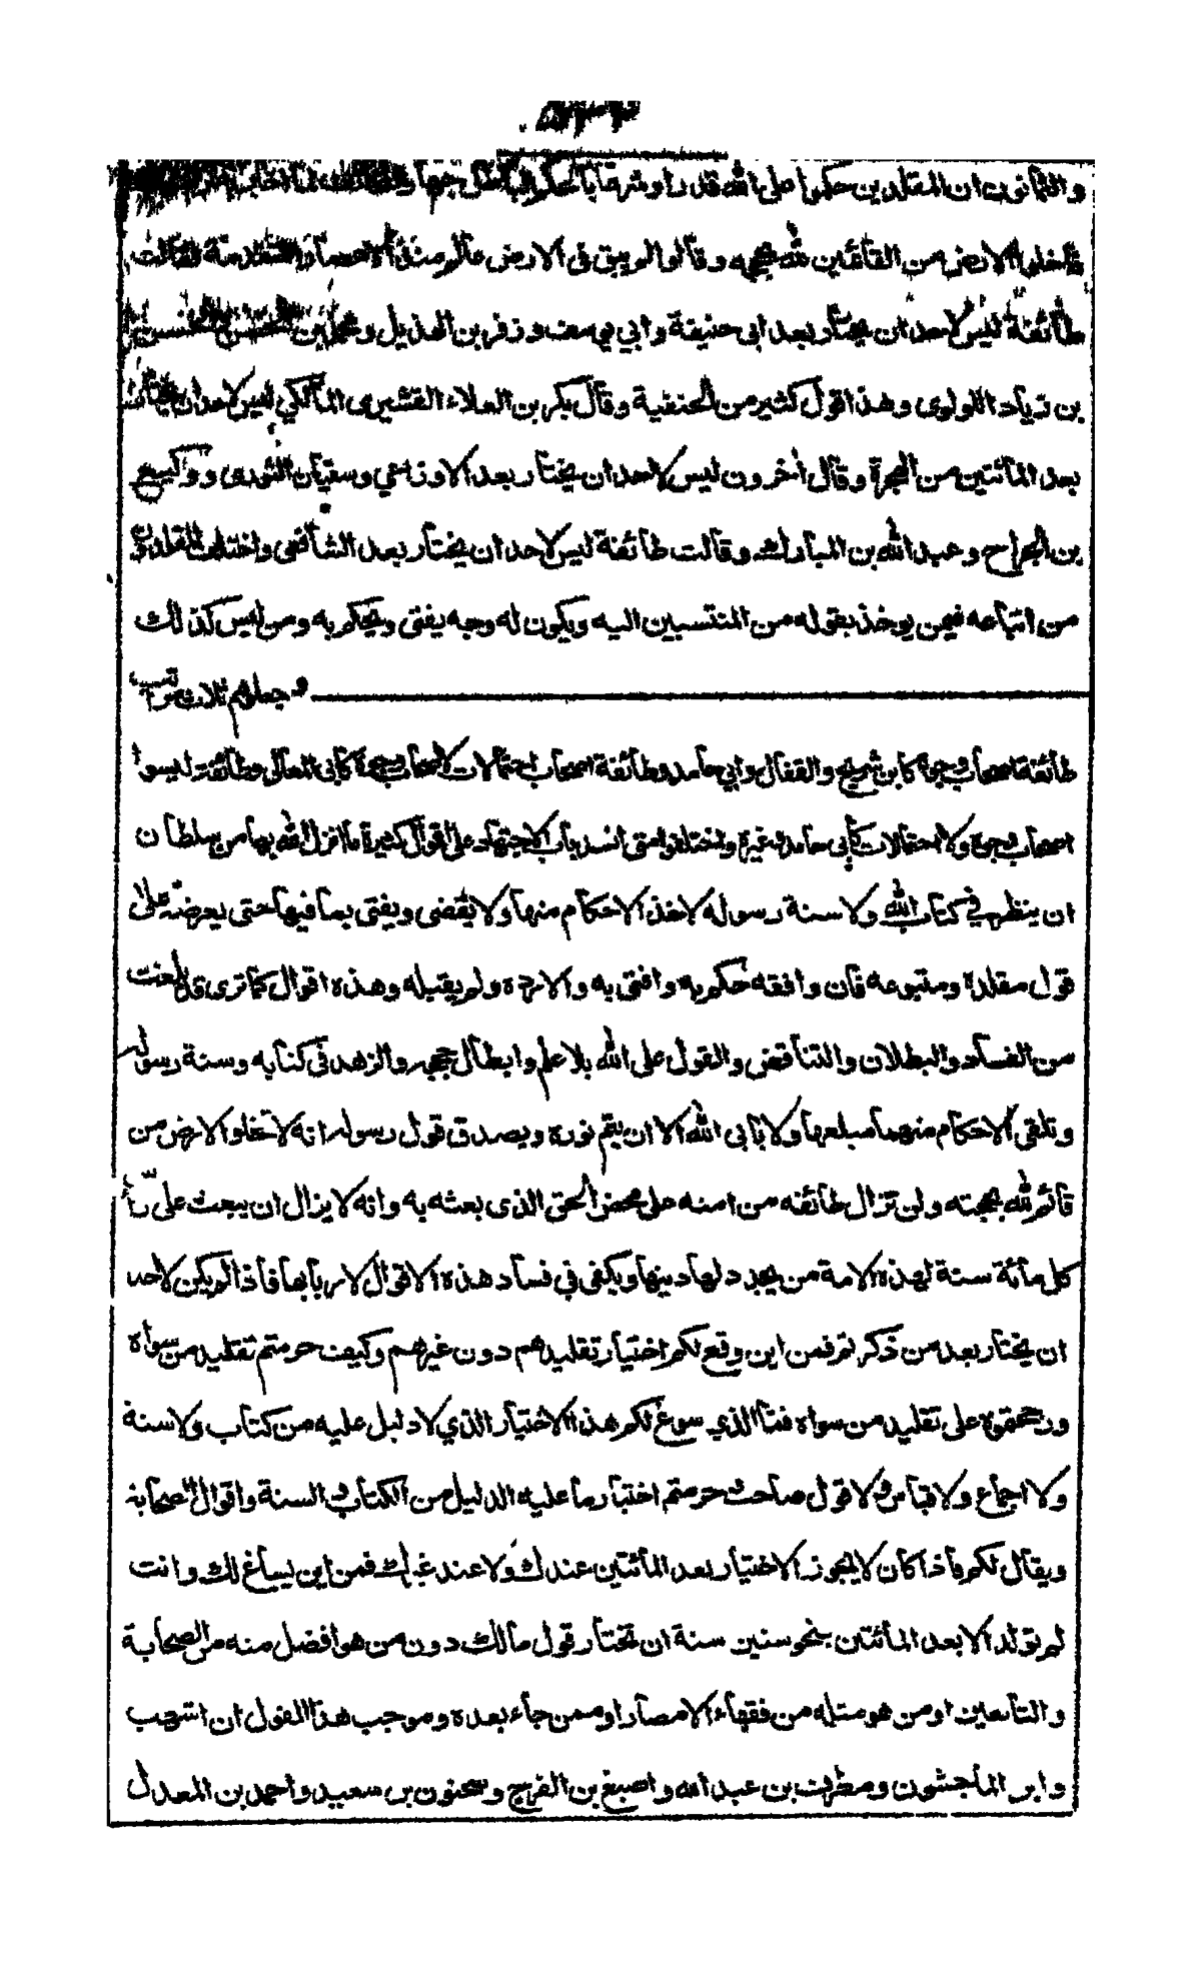 والثمانون ان المقلدين حكموا على الله قدرا وشرعا بالحكم الباطل جهارا
فاخلوا الارض من القائمين لله بحججه وقالوا لم يبق فى الارض عالم منذ الاعصار المتقدمة فقالت
طائفة ليس لاحد ان يختار بعد ابى حنيفة وابي يوسف وزفر بن الهذيل ومحمد بن الحسن والحسن
بن زياد اللولوى وهذا قول كثير من الحنفية وقال بكر بن العلاء القشيرى المالكي ليس لاحد ان يختار
بعد المائتين من الهجرة وقال اخرون ليس لاحد ان يختار بعد الاوزاعي وسفيان الثورى ووكيع
بن الجراح وعبد الله بن المبارك وقالت طائفة ليس لاحد ان يختار بعد الشافعى واختلف المقلدون
من اتباعه فيمن يوخذ بقوله من المنتسبين اليه ويكون له وجه يفتى ويحكم به ومن ليس كذلك
وجعلوهم ثلاث مراتب
طائفة اصحاب وجوه كابن شريح والقفال وابي حامد وطائفة اصحاب احتمالات لا اصحاب وجوه كابى المعالى وطائفة ليسوا
اصحاب وجوه ولا احتمالات كابى حامد وغيره واختلفوا متى انسد باب الاجتهاد على اقوال كثيرة ما انزل الله بها من سلطان
ان ينظر في كتاب الله ولا سنة رسوله لاخذ الاحكام منها ولا يقضى ويفتى بما فيها حتى يعرضه على
قول مقلده ومتبوعه فان وافقه حكم به وافتى به والا رده ولم يقبله وهذه اقوال كما ترى قد بلغت
من الفساد والبطلان والتناقض والقول على الله بلا علم وابطال حججه والزهد فى كتابه وسنة رسوله
وتلقى الاحكام منهما مبلغها ولا يابى الله الا ان يتم نوره ويصدق قول رسوله انه لا تخلو الارض من
قائم لله بحجته ولن تزال طائفه من امته على محض الحق الذى بعثه به وانه لا يزال ان يبعث على راس
كل مائة سنة لهذه الامة من يجدد لها دينها ويكفى في فساد هذه الاقوال لاربابها فاذا لم يكن لاحد
ان يختار بعد من ذكرتم فمن اين وقع لكم اختيار تقليدهم دون غيرهم وكيف حرمتم تقليد من سواه
ورجحتموه على تقليد من سواه فما الذي سوغ لكم هذا الاختيار الذي لا دليل عليه من كتاب ولا سنة
ولا اجماع ولا قياس ولا قول صاحب حرمتم اختيار ما عليه الدليل من الكتاب والسنة واقوال الصحابة
ويقال لكم فاذا كان لا يجوز الاختيار بعد المائتين عندك ولا عند غيرك فمن اين يساغ لك وانت
لم تولد الا بعد المائتين بنحو ستين سنة ان تختار قول مالك دون من هو افضل منه من الصحابة
والتابعين او من هو مثله من فقهاء الامصار او ممن جاء بعده وموجب هذا القول ان اشهب
وابن الماجشون ومطرف بن عبد الله واصبغ بن الفرج وسحنون بن سعيد واحمد بن المعدل